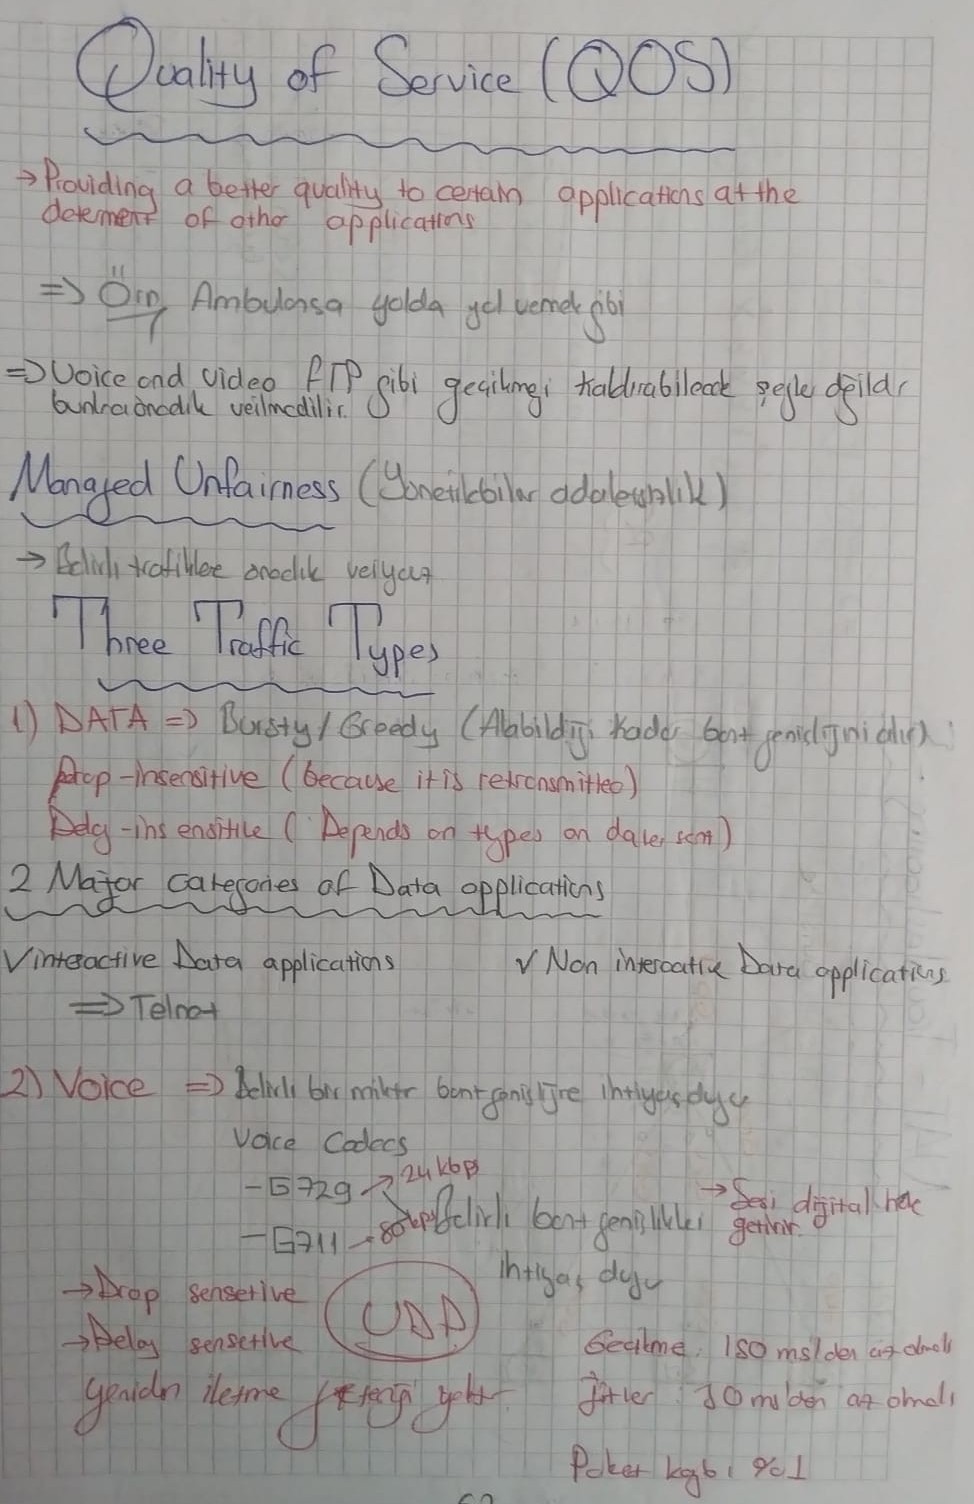 Quality of Service (QOS)
→ Providing a better quality to certain applications at the
determent of other applications
=> Örn, Ambulansa yolda yol vermek gibi
=> Voice and video FTP gibi gecikmeyi kaldırabilecek şeyler değildir
bunlara öncelik verilmedilir.
Managed Unfairness (Yönetilebilir adaletsizlik)
→ Belirli trafiklere öncelik veriyoruz
Three Traffic Types
1) DATA => Bursty/Greedy (Alabildiği kadar bant genişliğini alır)
Drop-insensitive (because it is retransmitted)
Delay-insensitive (Depends on types on data sent)
2 Major categories of Data applications
√ interactive Data applications √ Non interactive Data applications
=> Telnet
2) Voice => Belirli bir miktar bant genişliğine ihtiyaç duyar
Voice Codecs
- G729 → 24 kbps
→ Sesi digital hale
- G711 → 80 kbps Belirli bant genişlikleri getirir.
ihtiyaç duyu
→ Drop sensetive UDP
→ Delay sensetive Gecikme: 150 ms'den az olmalı
yeniden iletme yok Jitter: 30 ms'den az olmalı
Paket kaybı %1